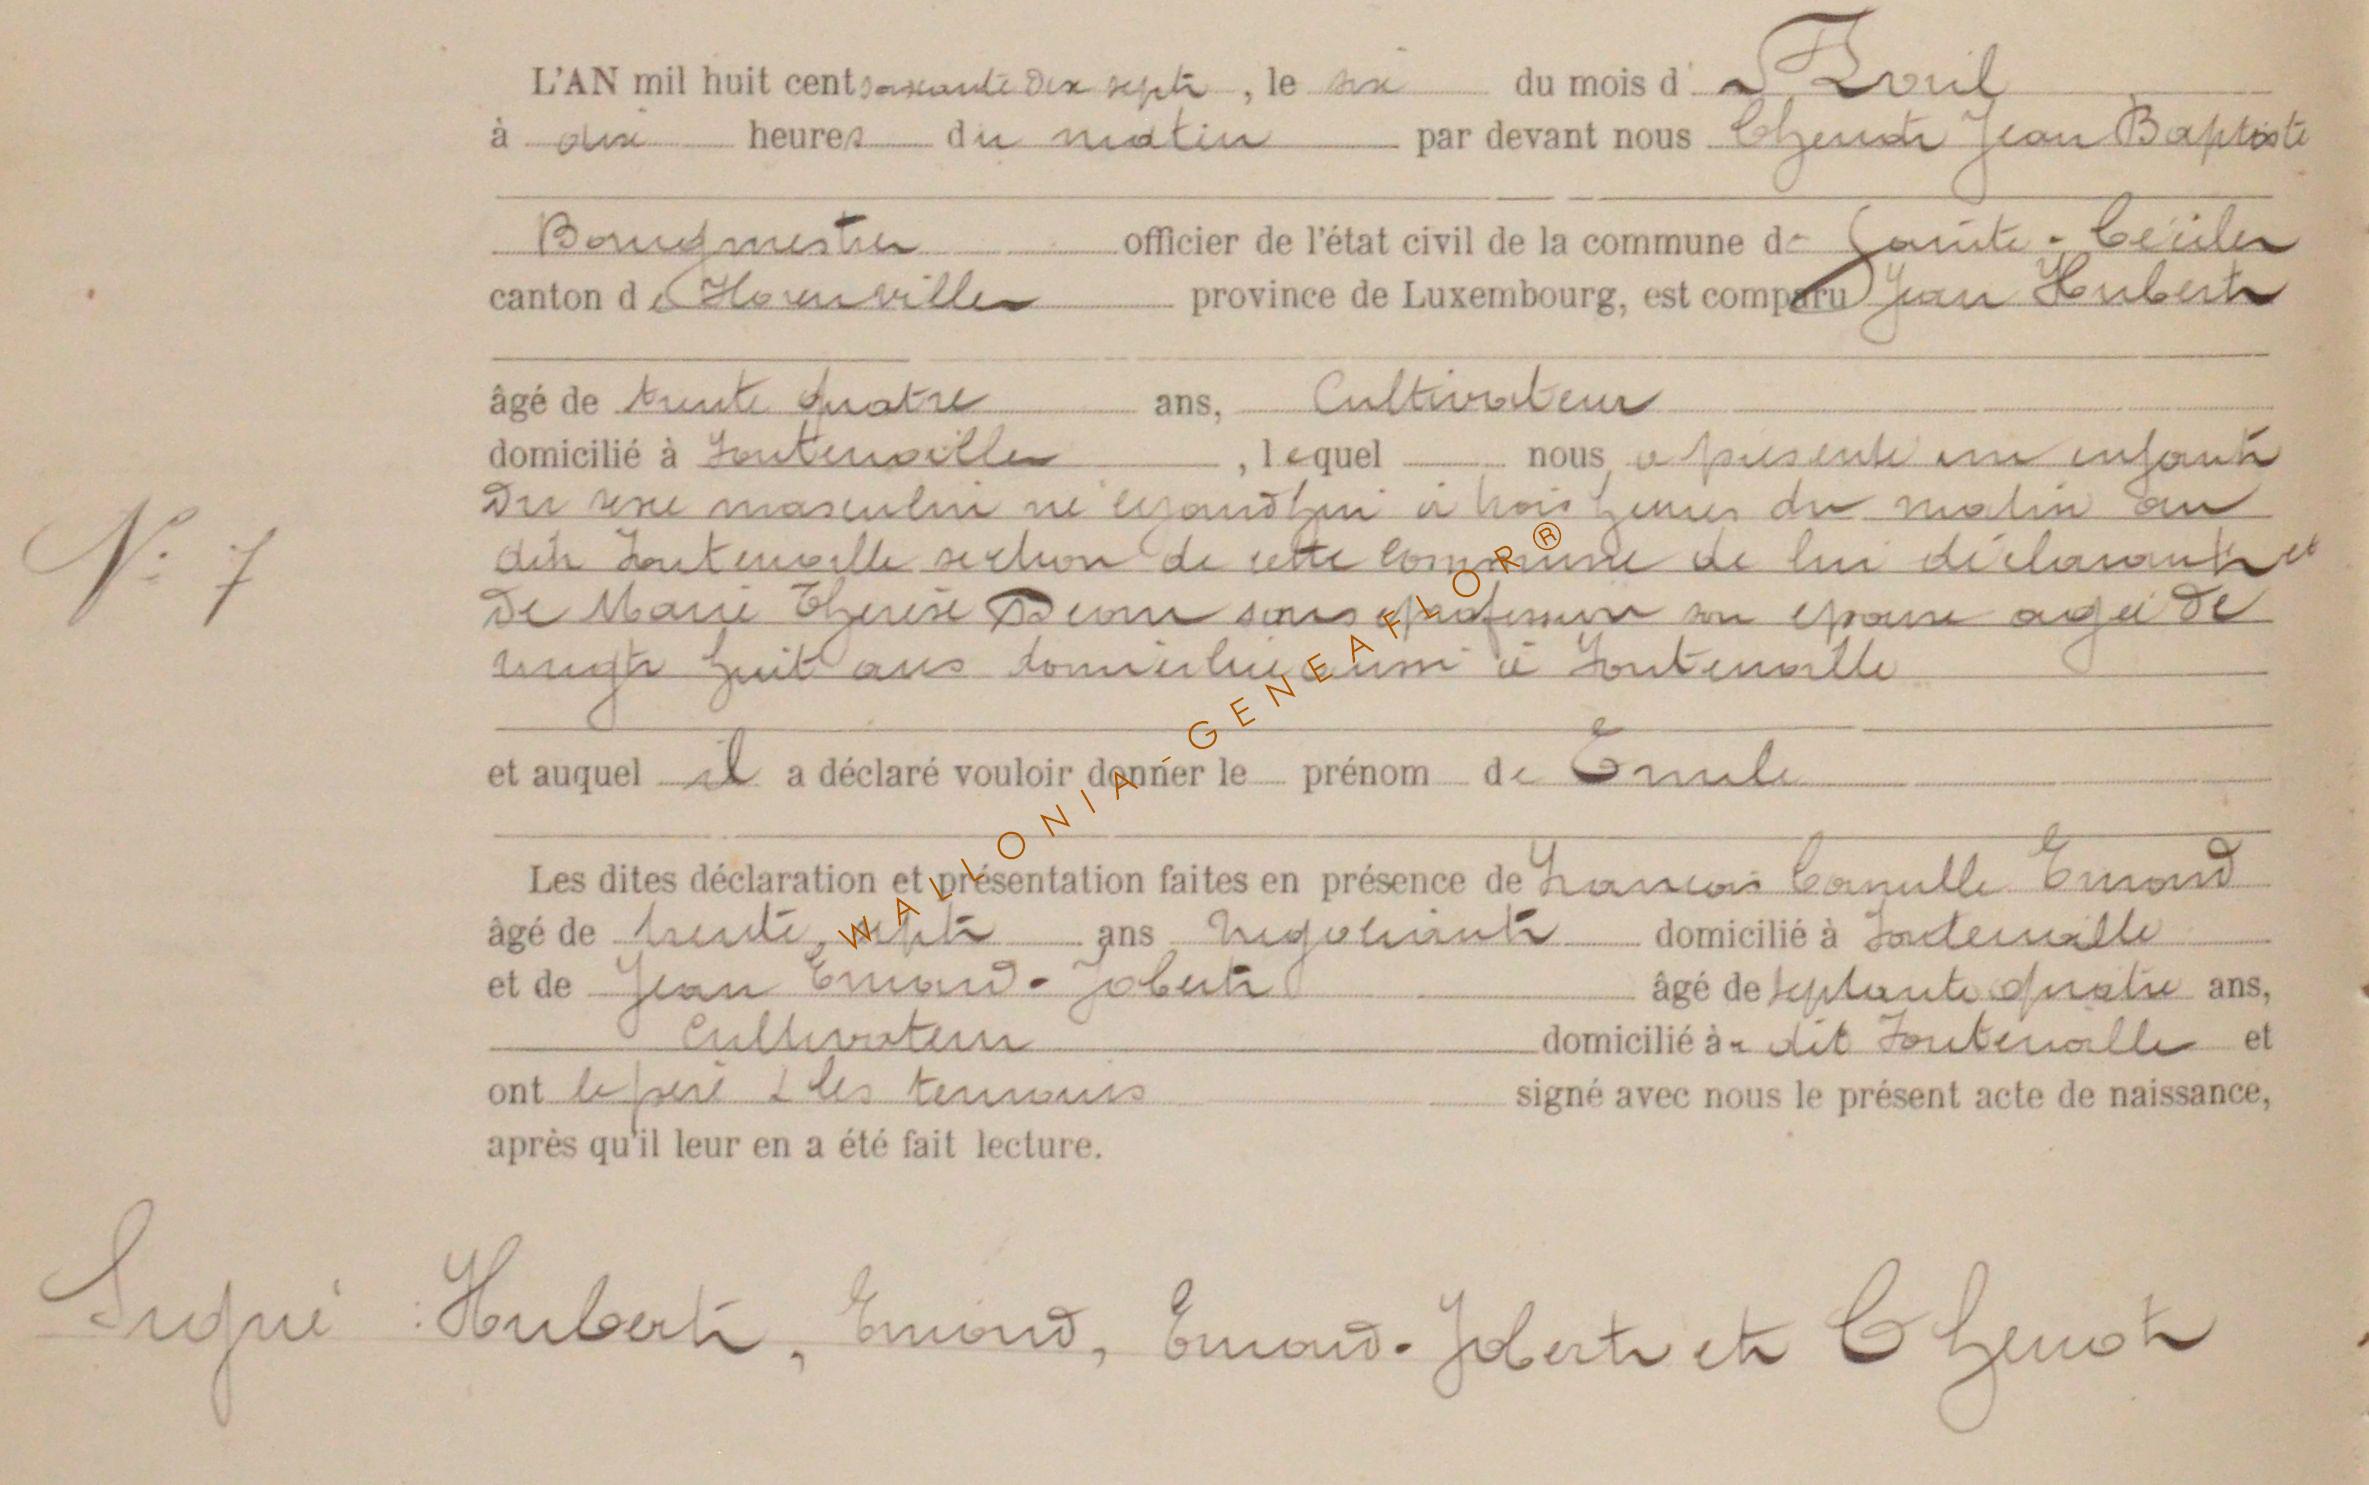 L'AN mil huit cent soixante dix sept, le six du mois d'Avril
à dix heures du matin par devant nous Thenot Jean Baptiste
Bourgmestre officier de l'état civil de la commune de Sainte-Cécile
canton de Florenville province de Luxembourg, est comparu Jean Hubert
âgé de trente quatre ans, Cultivateur
domicilié à Fontenoille, lequel nous a présenté un enfant
Du sexe masculin né cejourd'hui à trois heures du matin au
dit Fontenoille section de cette commune de lui déclarant et
De Marie Therese sans profession son épouse agée De
vingt huit ans domiciliée aussi à Fontenoille
N° 7
et auquel il a déclaré vouloir donner le prénom de Emile
Les dites déclaration et présentation faites en présence de Francois Camille Emond
âgé de trente sept ans Négociant domicilié à Fontenoille
et de Jean Emond-Jobert âgé de septante quatre ans,
Cultivateur domicilié à dit Fontenoille et
ont le père & les temoins signé avec nous le présent acte de naissance,
après qu'il leur en a été fait lecture.
Signé : Hubert, Emond, Emond-Jobert et Thenot
WALLONIA-GENEAFLOR®